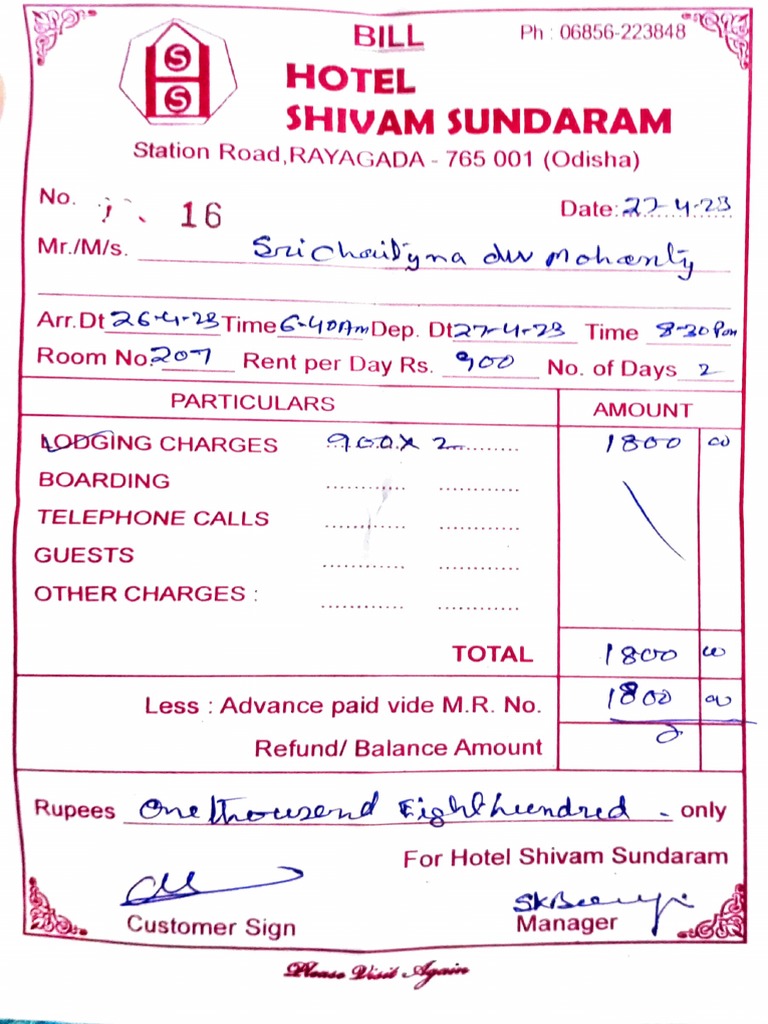 BILL
Ph : 06856-223848
HOTEL
SHIVAM SUNDARAM
Station Road,RAYAGADA - 765 001 (Odisha)
No. 16
Date: 27-4-23
Mr./M/s. Sri Mohanty
Arr.Dt 26-4-23 Time 6-40Am Dep. Dt 27-4-23 Time 8-30 Pm
Room No. 207 Rent per Day Rs. 900 No. of Days 2
PARTICULARS AMOUNT
LODGING CHARGES 900 x 2 1800 00
BOARDING
TELEPHONE CALLS
GUESTS
OTHER CHARGES :
TOTAL 1800 00
Less : Advance paid vide M.R. No. 1800 00
Refund/ Balance Amount 0
Rupees One thousend Eight hundred - only
For Hotel Shivam Sundaram
Customer Sign
Manager
Please Visit Again